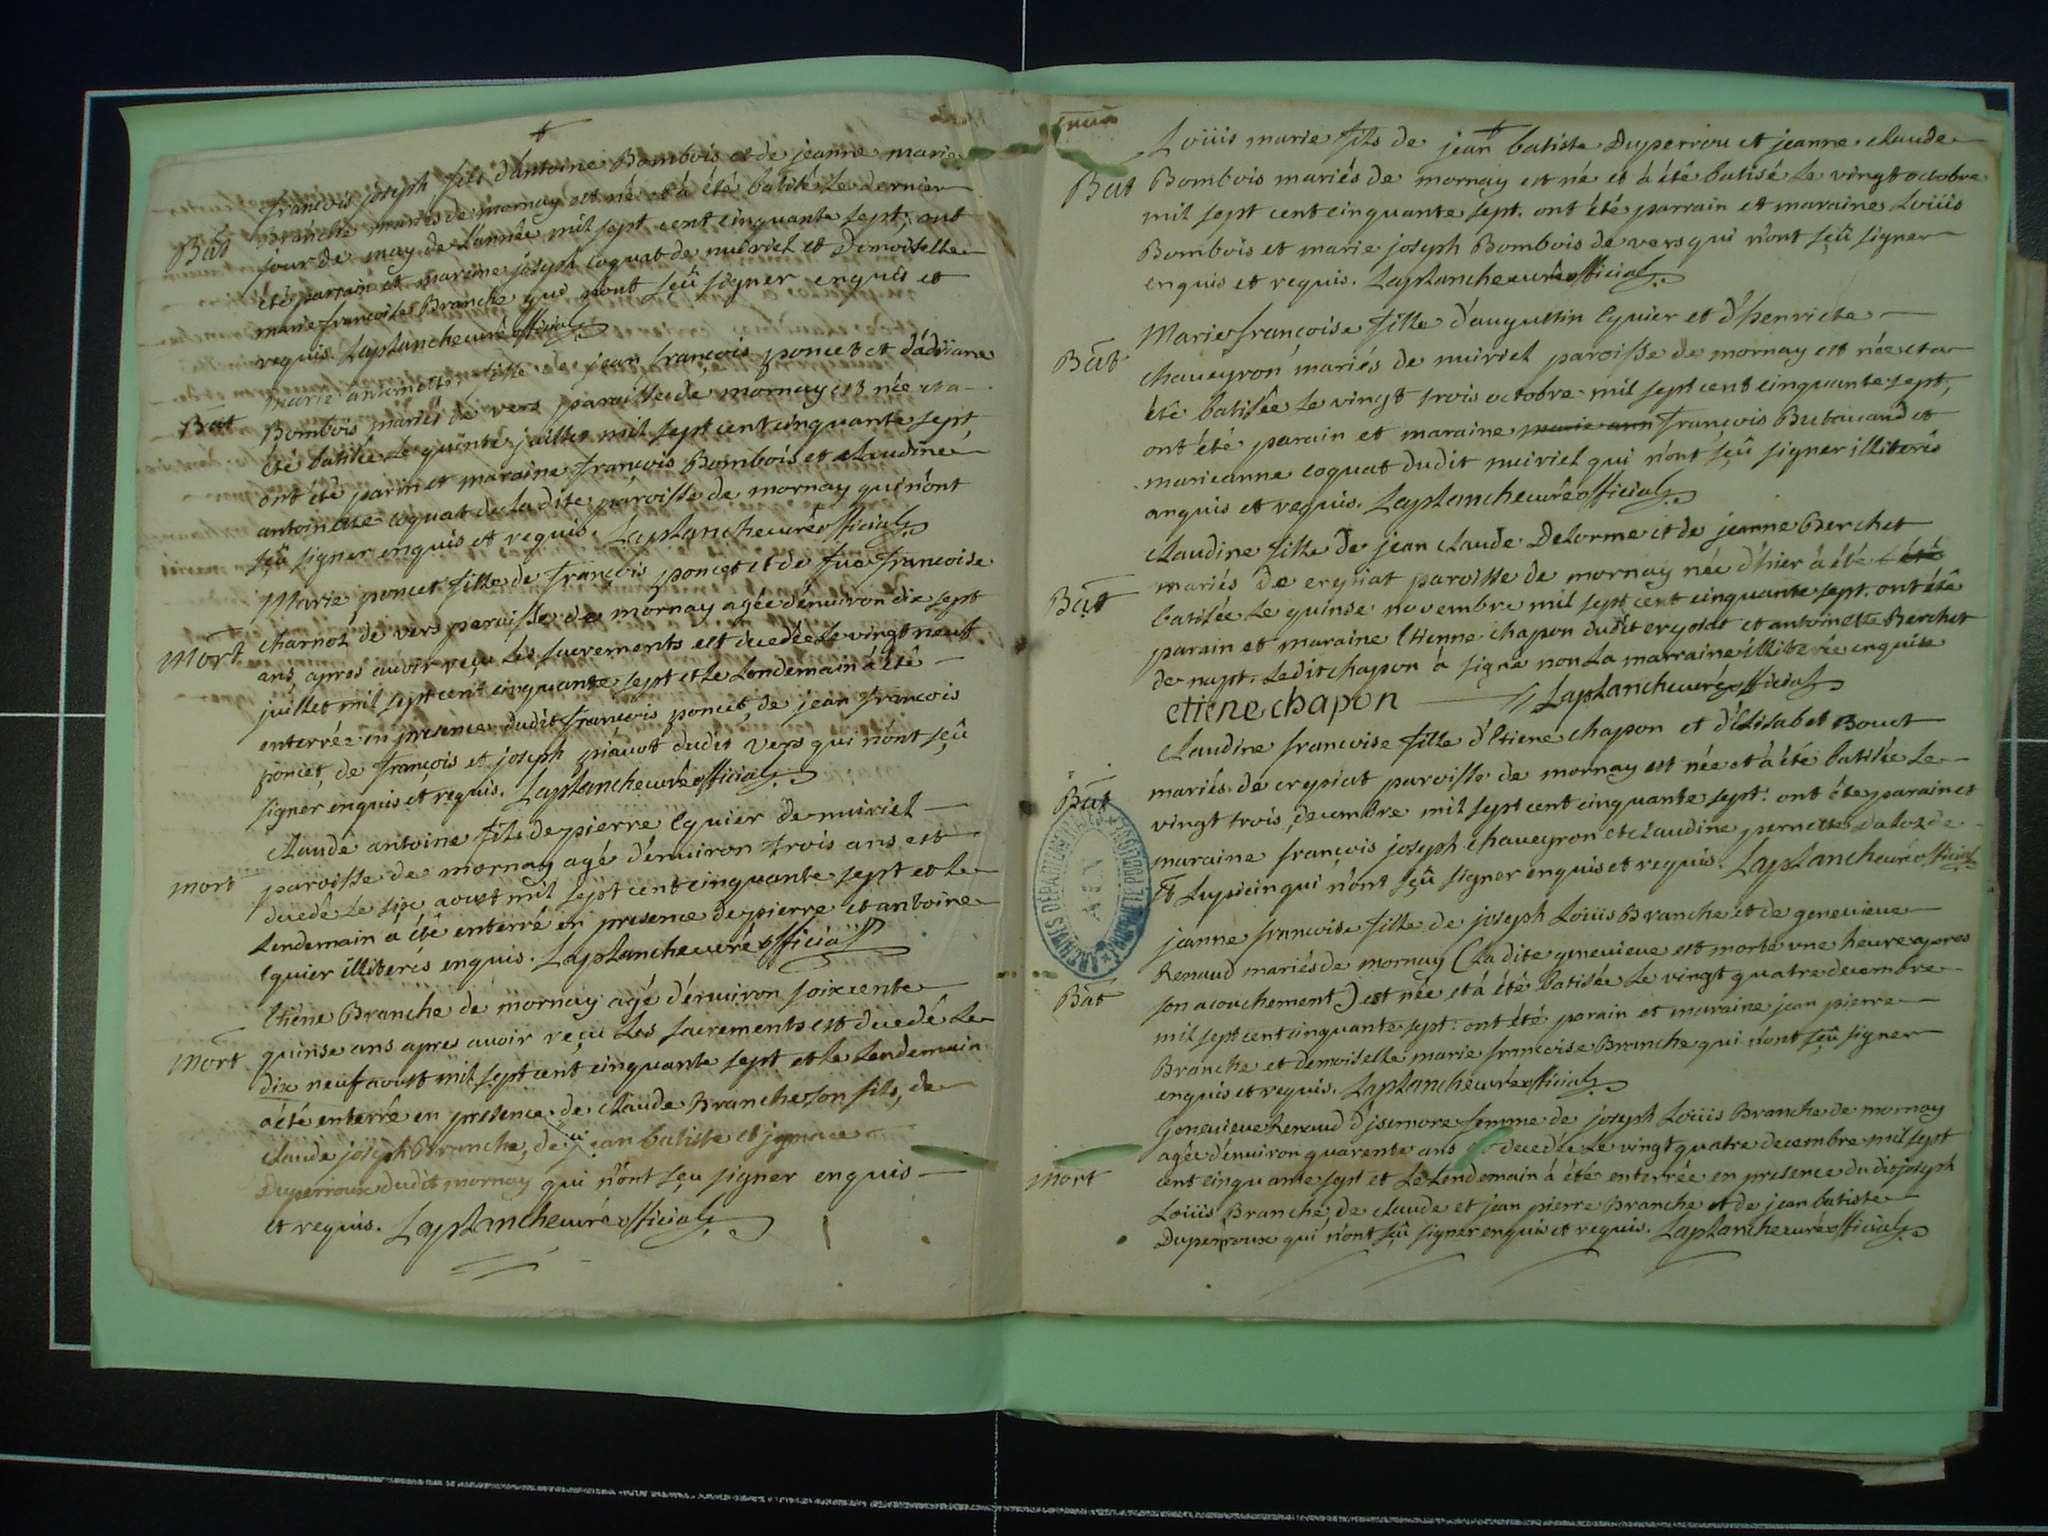 Bât
françois joseph fils d'antoine Bombois et de jeanne marie
Branche mariés de mornay est né et à été batisé le dernier
jour de may de l'année mil sept cent cinquante sept, ont
été parrain et mareine joseph coquat de nuiriel et Demoiselle
marie francoise Branche qui n'ont sçû signer enquis et
requis. Laplanche curé official
Bât
Marie antoinette fille de jean françois poncet et d'adriane
Bombois mariés de vers paroisse de mornay est née et a
été batisée le quinze juillet mil sept cent cinquante sept
ont été parin et maraine françois Bombois et claudine
antoinette coquat de la dite paroisse de mornay qui n'ont
sçû signer enquis et requis. Laplanche curé official
Mort
Marie poncet fille de françois poncet et de fue francoise
charnoz de vers paroisse de mornay agée d'environ dix sept
ans, apres avoir reçu les sacrements est decedée le vingt neuf
juillet mil sept cent cinquante sept et le londemain à été
enterrée en presence dudit françois poncet, de jean francois
poncet, de françois et joseph dudit vers qui n'ont sçû
signer enquis et requis. Laplanche curé official
mort
Claude antoine fils de pierre Eguier de nuiriel
paroisse de mornay agé d'environ trois ans est
decedé le six aoust mil sept cent cinquante sept et le
lendemain a été enterré en presence de pierre et antoine
Eguier illiterés enquis. Laplanche curé official
Mort
Etiene Branche de mornay agé d'environ soixcente
quinse ans apres avoir reçu les sacrements est decedé le
dix neuf aoust mil sept cent cinquante sept et le lendemain
a été enterré en presence de claude Branche son fils, de
claude joseph Branche, de jean batiste et ignace
Duperroux dudit mornay qui n'ont sçu signer enquis
et requis. Laplanche curé official
Bat
Loüis marie fils de jean batiste Duperrou et jeanne claude
Bombois mariés de mornay est né et à été batisé le vingt octobre
mil sept cent cinquante sept. ont été parrain et maraine Loüis
Bombois et marie joseph Bombois de vers qui n'ont sçû signer
enquis et requis. Laplanche curé official
Bât
Marie françoise fille d'augustin Eguier et d'henriete
chaveyron mariés de nuiriel paroisse de mornay est née et a
été batisée le vingt trois octobre mil sept cent cinquante sept,
ont été parain et maraine françois Butavand et
marieanne coquat dudit nuiriel qui n'ont sçû signer illiterés
anquis et requis. Laplanche curé official
Bât
claudine fille de jean claude Delorme et de jeanne Berchet
mariés de crypiat paroisse de mornay née d'hier à été été
batisée le quinse novembre mil sept cent cinquante sept. ont été
parain et maraine Etienne chapon dudit crypiat et antoinette Berchet
de napt. ledit chapon à signé non la marraine illiterée enquise
etiene chapon Laplanche curé official
Bât
Claudine françoise fille d'Etiene chapon et d'Elisabet Bouet
mariés de crypiat paroisse de mornay est née et à été batisée le
vingt trois decembre mil sept cent cinquante sept. ont été parain et
maraine françois joseph chaveyron et claudine pernette Daloz de
St Lupicin qui n'ont sçû signer enquis et requis. Laplanche curé official
Bat
jeanne francoise fille de joseph Loüis Branche et de genevieve
Renaud mariés de mornay (la dite genevieve est morte une heure apres
son acouchement) est née et à été batisée le vingt quatre decembre
mil sept cent cinquante sept. ont été parain et maraine jean pierre
Branche et demoiselle marie francoise Branche qui n'ont sçû signer
enquis et requis. Laplanche curé official
Mort
Genevieve Renaud d'jsernore femme de joseph Loüis Branche de mornay
agée d'environ quarente ans decedée le vingt quatre decembre mil sept
cent cinquante sept et le lendemain à été enterrée en presence dudit joseph
Loüis Branche, de claude et jean pierre Branche et de jean batiste
Duperroux qui n'ont sçû signer enquis et requis. Laplanche curé official